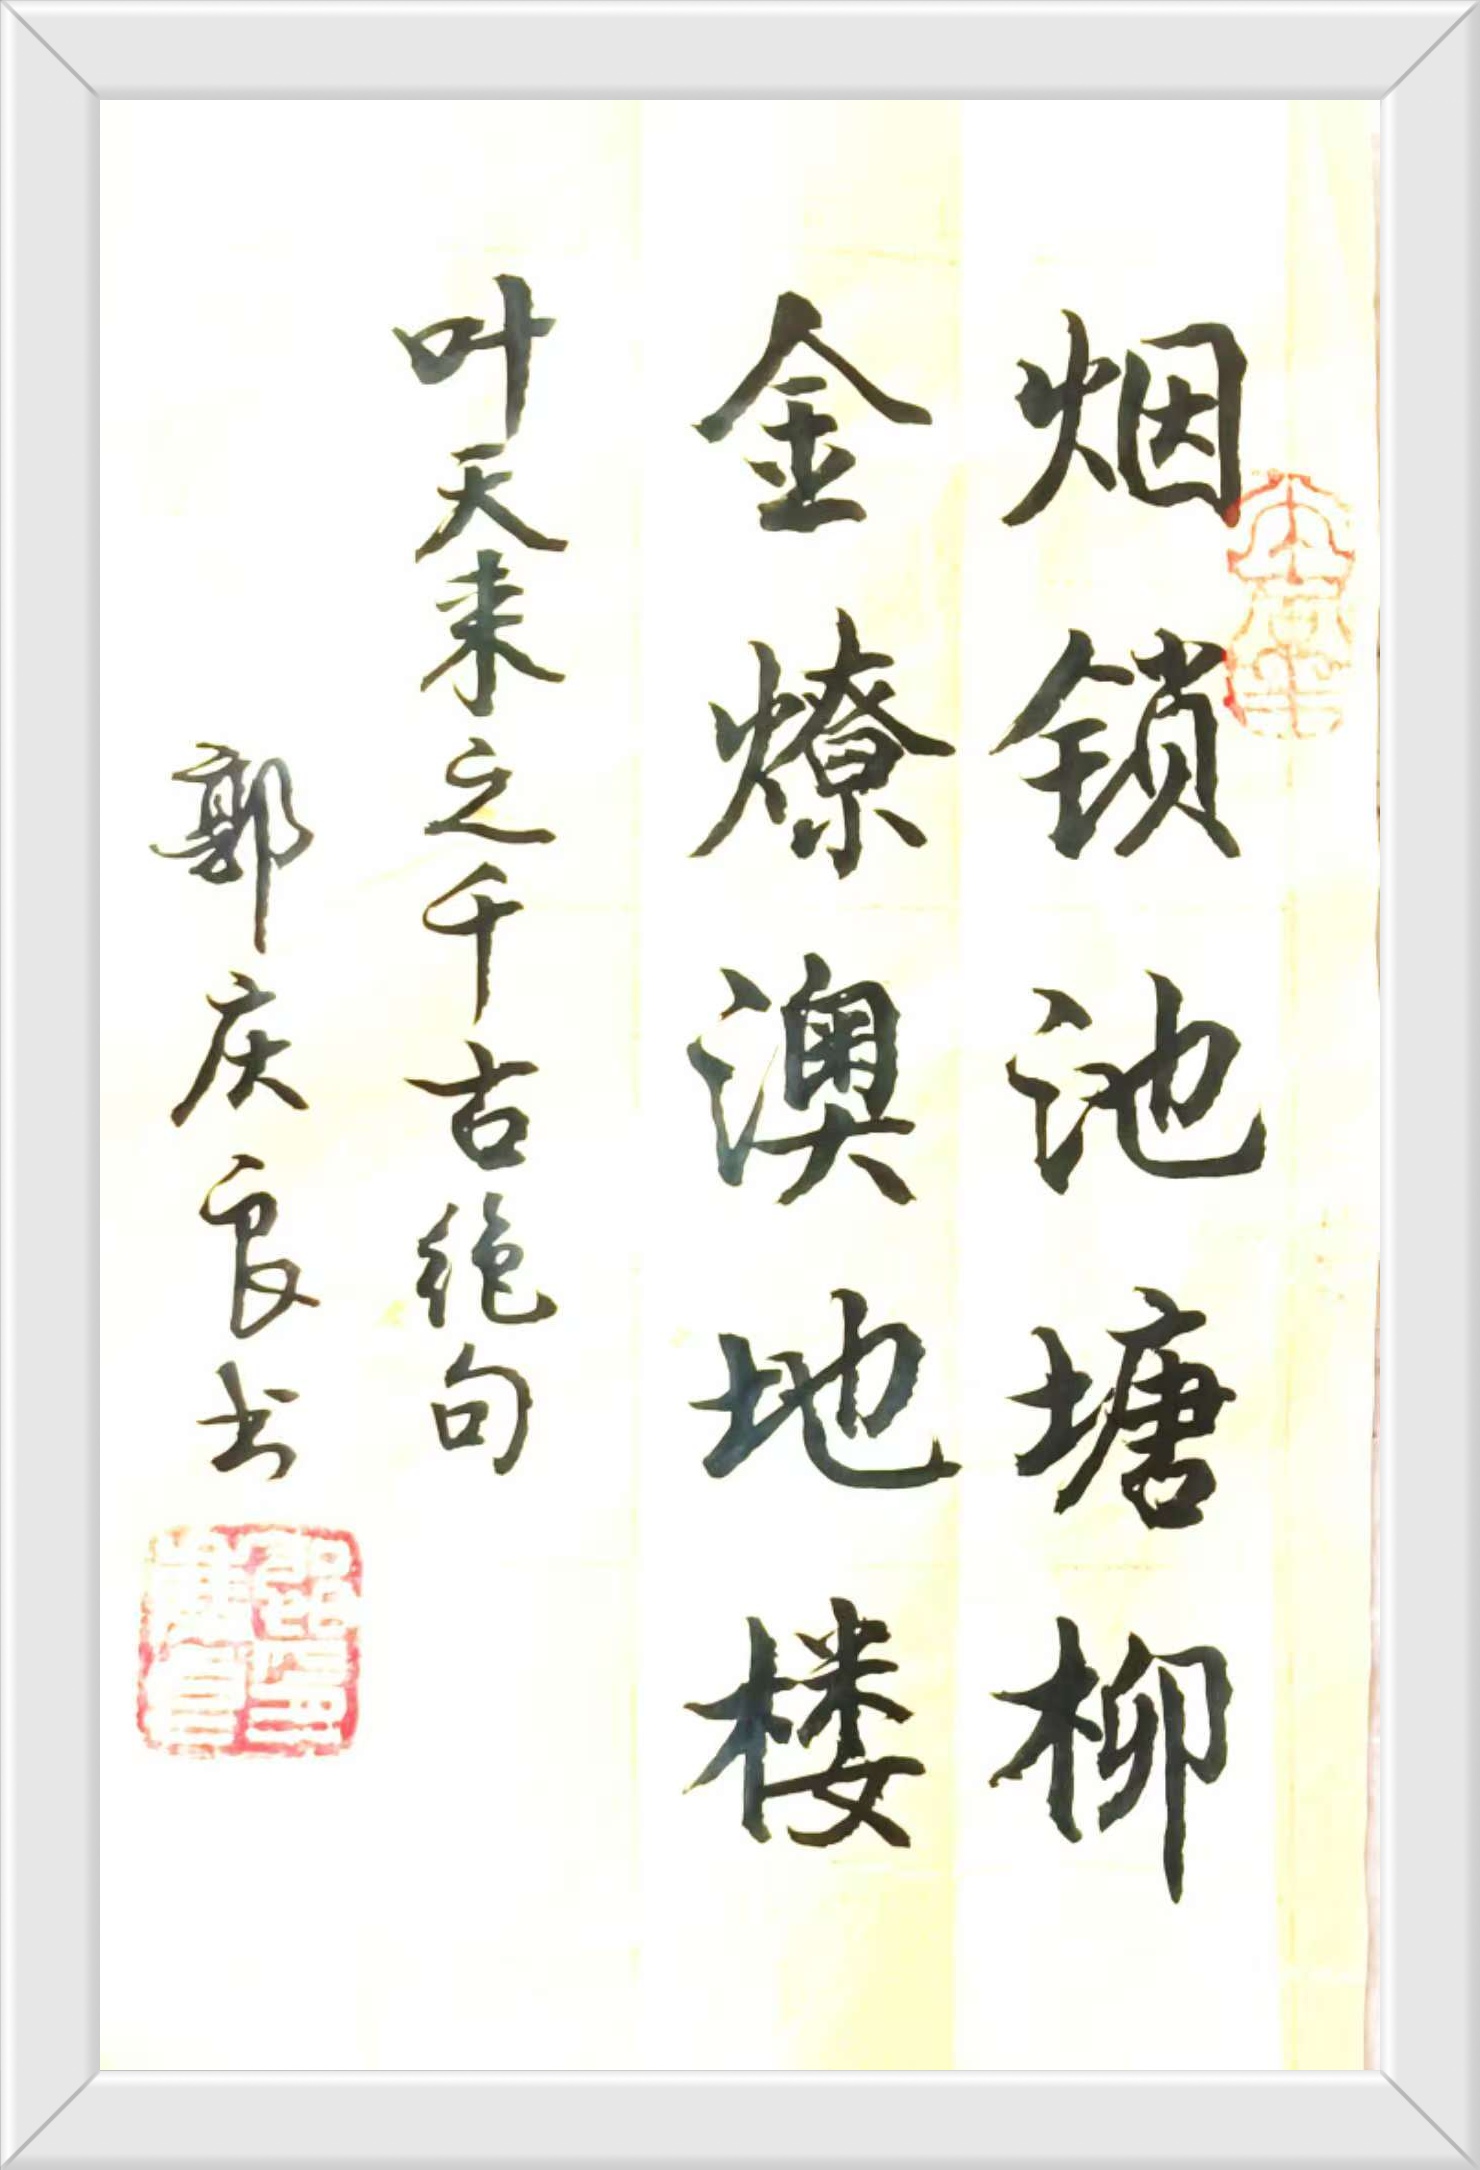 烟锁池塘柳
金燎澳地楼
叶天来之千古绝句
郭庆良书